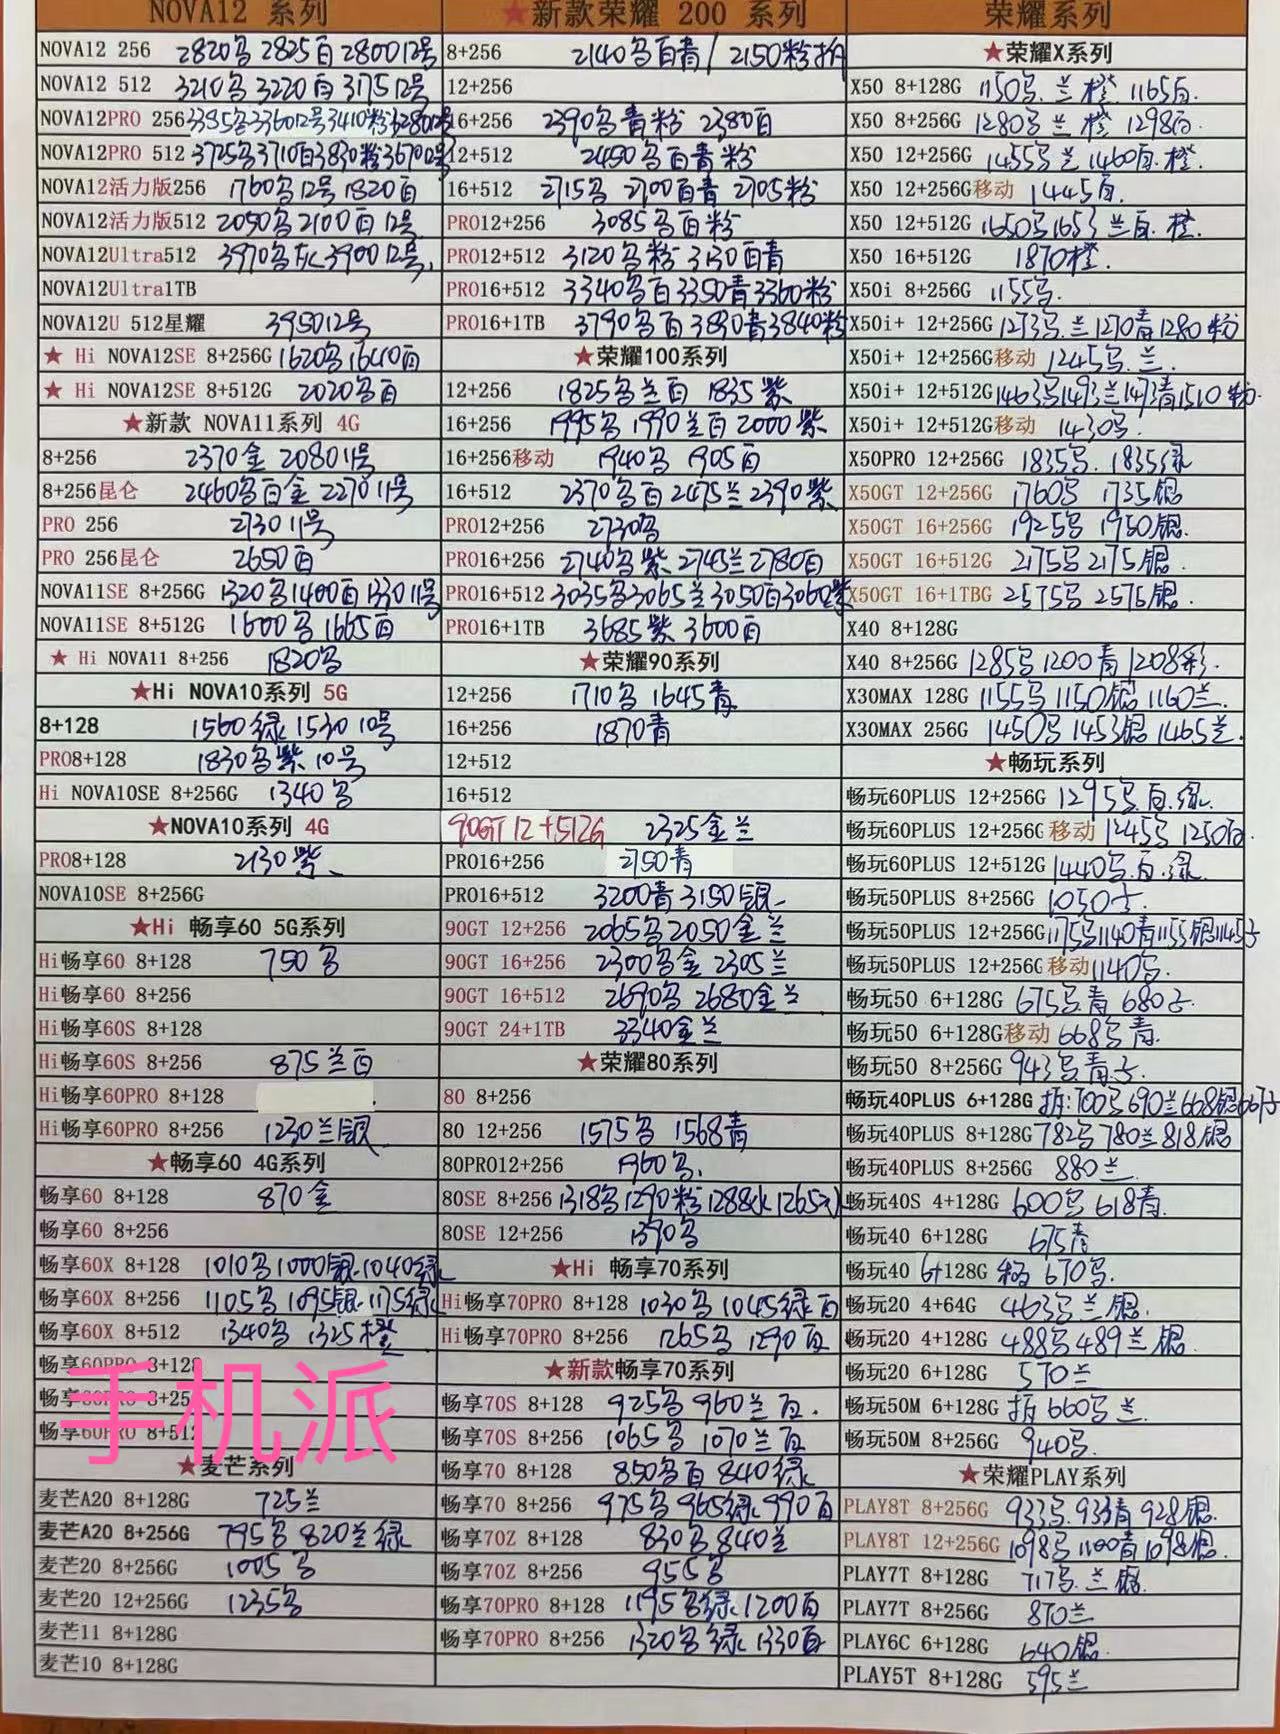 NOVA12 系列
NOVA12 256 2820 2825白 2800 12号
NOVA12 512 3210 3220白 3175 12号
NOVA12PRO 256
NOVA12PRO 512 3725 3710白 3830粉 3670
NOVA12活力版256 1760 12号 1820白
NOVA12活力版512 2050 2100白 12号
NOVA12Ultra512 3970 灰 3900 12号
NOVA12Ultra1TB
NOVA12U 512星耀 3950 12号
★ Hi NOVA12SE 8+256G 1620 1640白
★ Hi NOVA12SE 8+512G 2020 白
★新款 NOVA11系列 4G
8+256 2370金 2080 11号
8+256昆仑 2460 白金 2270 11号
PRO 256 2730 11号
PRO 256昆仑 2650白
NOVA11SE 8+256G 1320 1400白 1330 11号
NOVA11SE 8+512G 1600 1665白
★ Hi NOVA11 8+256 1820
★Hi NOVA10系列 5G
8+128 1560绿 1530 10号
PRO8+128 1830 紫 10号
Hi NOVA10SE 8+256G 1340
★NOVA10系列 4G
PRO8+128 2130紫
NOVA10SE 8+256G
★Hi 畅享60 5G系列
Hi畅享60 8+128 750
Hi畅享60 8+256
Hi畅享60S 8+128
Hi畅享60S 8+256 875兰白
Hi畅享60PRO 8+128
Hi畅享60PRO 8+256 1230兰银
★畅享60 4G系列
畅享60 8+128 870金
畅享60 8+256
畅享60X 8+128 1010 1000银 1040绿
畅享60X 8+256 1105 1095银 1175绿
畅享60X 8+512 1340 1325橙
畅享60PRO 8+128
畅享60PRO 8+256
畅享60PRO 8+512
手机派
★麦芒系列
麦芒A20 8+128G 725兰
麦芒A20 8+256G 795 820兰绿
麦芒20 8+256G 1005
麦芒20 12+256G 1235
麦芒11 8+128G
麦芒10 8+128G
★新款荣耀 200 系列
8+256 2140 白青/2150粉
12+256
16+256 2390 青粉 2380白
12+512 2450 白青粉
16+512 2715 2700白青 2705粉
PRO12+256 3085 白粉
PRO12+512 3120 粉 3130白青
PRO16+512 3340 白 3350青 3360粉
PRO16+1TB 3790 白 3830青 3840粉
★荣耀100系列
12+256 1825 兰白 1835紫
16+256 1995 1990兰白 2000紫
16+256移动 1940 1905白
16+512 2370 白 2475兰 2390紫
PRO12+256 2730
PRO16+256 2740 紫 2745兰 2780白
PRO16+512 3035 3065兰 3050白 3060紫
PRO16+1TB 3685紫 3600白
★荣耀90系列
12+256 1710 1645青
16+256 1870青
12+512
16+512
90GT 12+512G 2325金兰
PRO16+256 2750青
PRO16+512 3200青 3150银
90GT 12+256 2065 2050金兰
90GT 16+256 2300 金 2305兰
90GT 16+512 2690 2680金兰
90GT 24+1TB 3340金兰
★荣耀80系列
80 8+256
80 12+256 1575 1568青
80PRO12+256 1960
80SE 8+256 1318 1290粉 1288 1265
80SE 12+256 1390
★Hi 畅享70系列
Hi畅享70PRO 8+128 1030 1045绿白
Hi畅享70PRO 8+256 1265 1290白
★新款畅享70系列
畅享70S 8+128 925 960兰白
畅享70S 8+256 1065 1070兰白
畅享70 8+128 850 白 840绿
畅享70 8+256 975 965绿 990白
畅享70Z 8+128 830 840兰
畅享70Z 8+256 955
畅享70PRO 8+128 1195 绿 1200白
畅享70PRO 8+256 1320 绿 1330白
荣耀系列
★荣耀X系列
X50 8+128G 1150 兰 橙 1165白
X50 8+256G 1280 兰 橙 1298白
X50 12+256G 1455 兰 1460白 橙
X50 12+256G移动 1445白
X50 12+512G 1650 兰白 橙
X50 16+512G 1870橙
X50i 8+256G 1155
X50i+ 12+256G 1273 兰 1270青 1280粉
X50i+ 12+256G移动 1245 兰
X50i+ 12+512G 1463 1493兰 1473青 1510粉
X50i+ 12+512G移动 1430
X50PRO 12+256G 1835 1835绿
X50GT 12+256G 1760 1735银
X50GT 16+256G 1925 1950银
X50GT 16+512G 2175 2175银
X50GT 16+1TBG 2575 2575银
X40 8+128G
X40 8+256G 1285 1200青 1208彩
X30MAX 128G 1155 1150银 1160兰
X30MAX 256G 1450 1453银 1465兰
★畅玩系列
畅玩60PLUS 12+256G 1295 白 绿
畅玩60PLUS 12+256G 移动 1245 1250白
畅玩60PLUS 12+512G 1440 白 绿
畅玩50PLUS 8+256G 1050
畅玩50PLUS 12+256G 1175 1140青 1155银 1145
畅玩50PLUS 12+256G 移动 1140
畅玩50 6+128G 675 青 680
畅玩50 6+128G移动 668 青
畅玩50 8+256G 943 青
畅玩40PLUS 6+128G 拆:700 690兰 668银
畅玩40PLUS 8+128G 782 780兰 818银
畅玩40PLUS 8+256G 880兰
畅玩40S 4+128G 600 618青
畅玩40 6+128G 675青
畅玩40 6+128G 670
畅玩20 4+64G 463 兰 银
畅玩20 4+128G 488 489兰 银
畅玩20 6+128G 570兰
畅玩50M 6+128G 拆 660 兰
畅玩50M 8+256G 940
★荣耀PLAY系列
PLAY8T 8+256G 933 933青 928银
PLAY8T 12+256G 1098 1100青 1098银
PLAY7T 8+128G 717 兰 银
PLAY7T 8+256G 870兰
PLAY6C 6+128G 640银
PLAY5T 8+128G 595兰